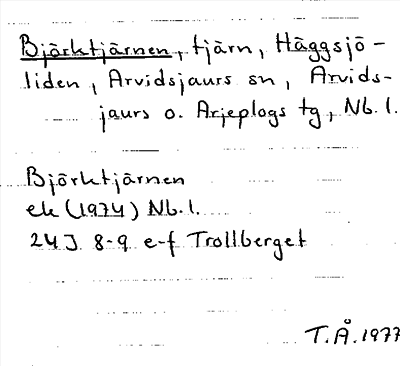 Björktjärnen, tjärn, Häggsjö-
liden, Arvidsjaurs sn, Arvids-
jaurs o. Arjeplogs tg, Nb. l.
Björktjärnen
ek (1974) Nb. l.
24J 8-9 e-f Trollberget
T.Å. 1977